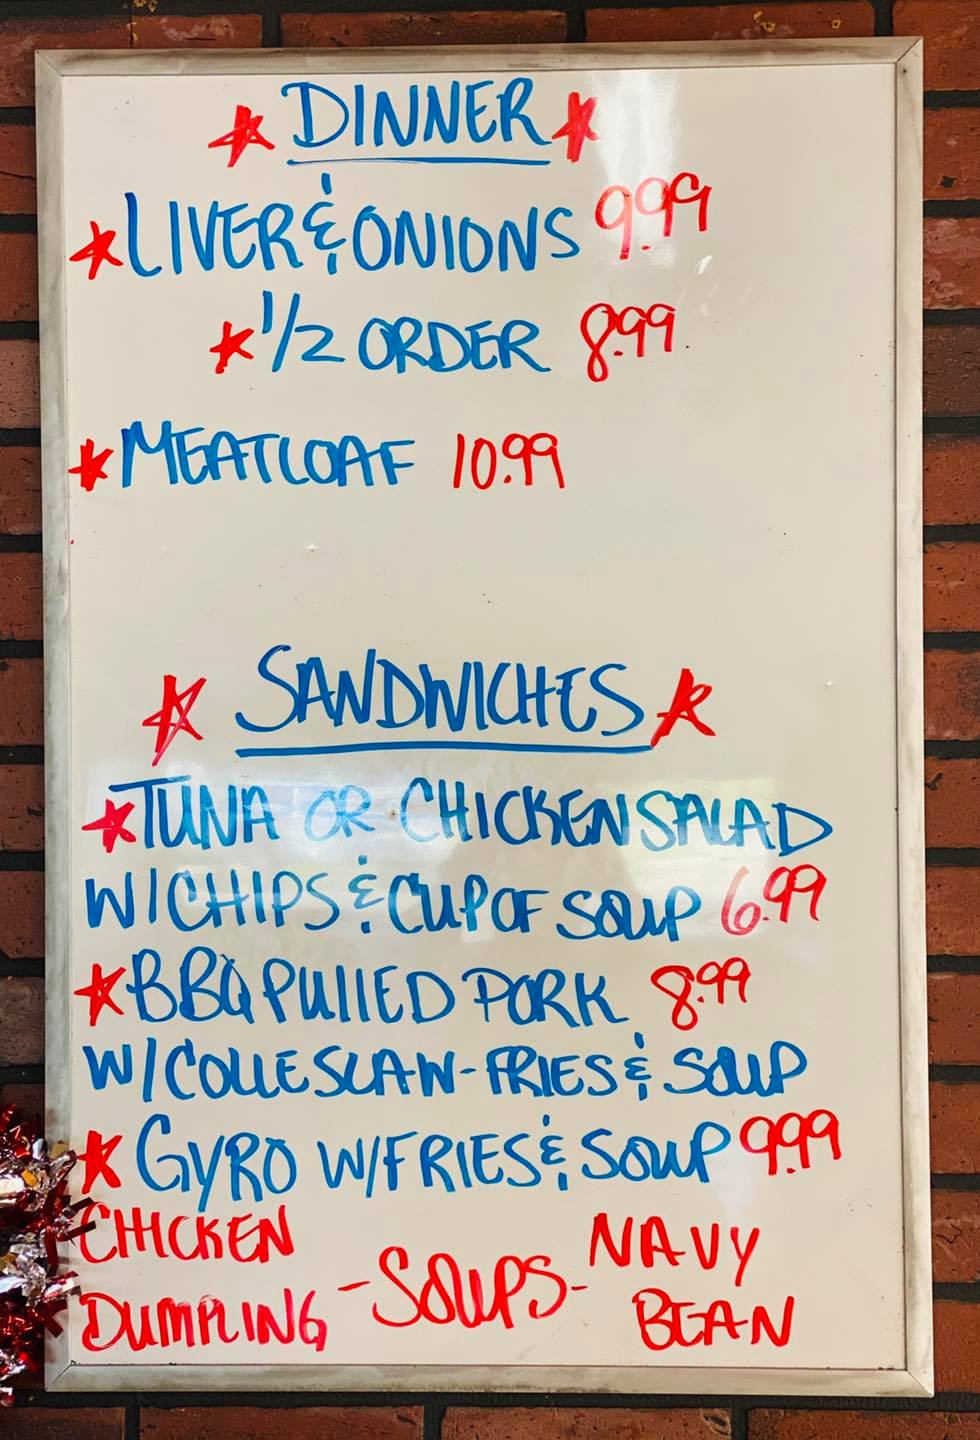 DINNER
LIVER & ONIONS 9.99
1/2 ORDER 8.99
MEATLOAF 10.99
SANDWICHES
TUNA OR CHICKEN SALAD
W/CHIPS & CUP OF SOUP 6.99
BBQ PULLED PORK 8.99
W/COLLESLAW-FRIES & SOUP
GYRO W/FRIES & SOUP 9.99
CHICKEN
DUMPLING
-SOUPS-
NAVY
BEAN